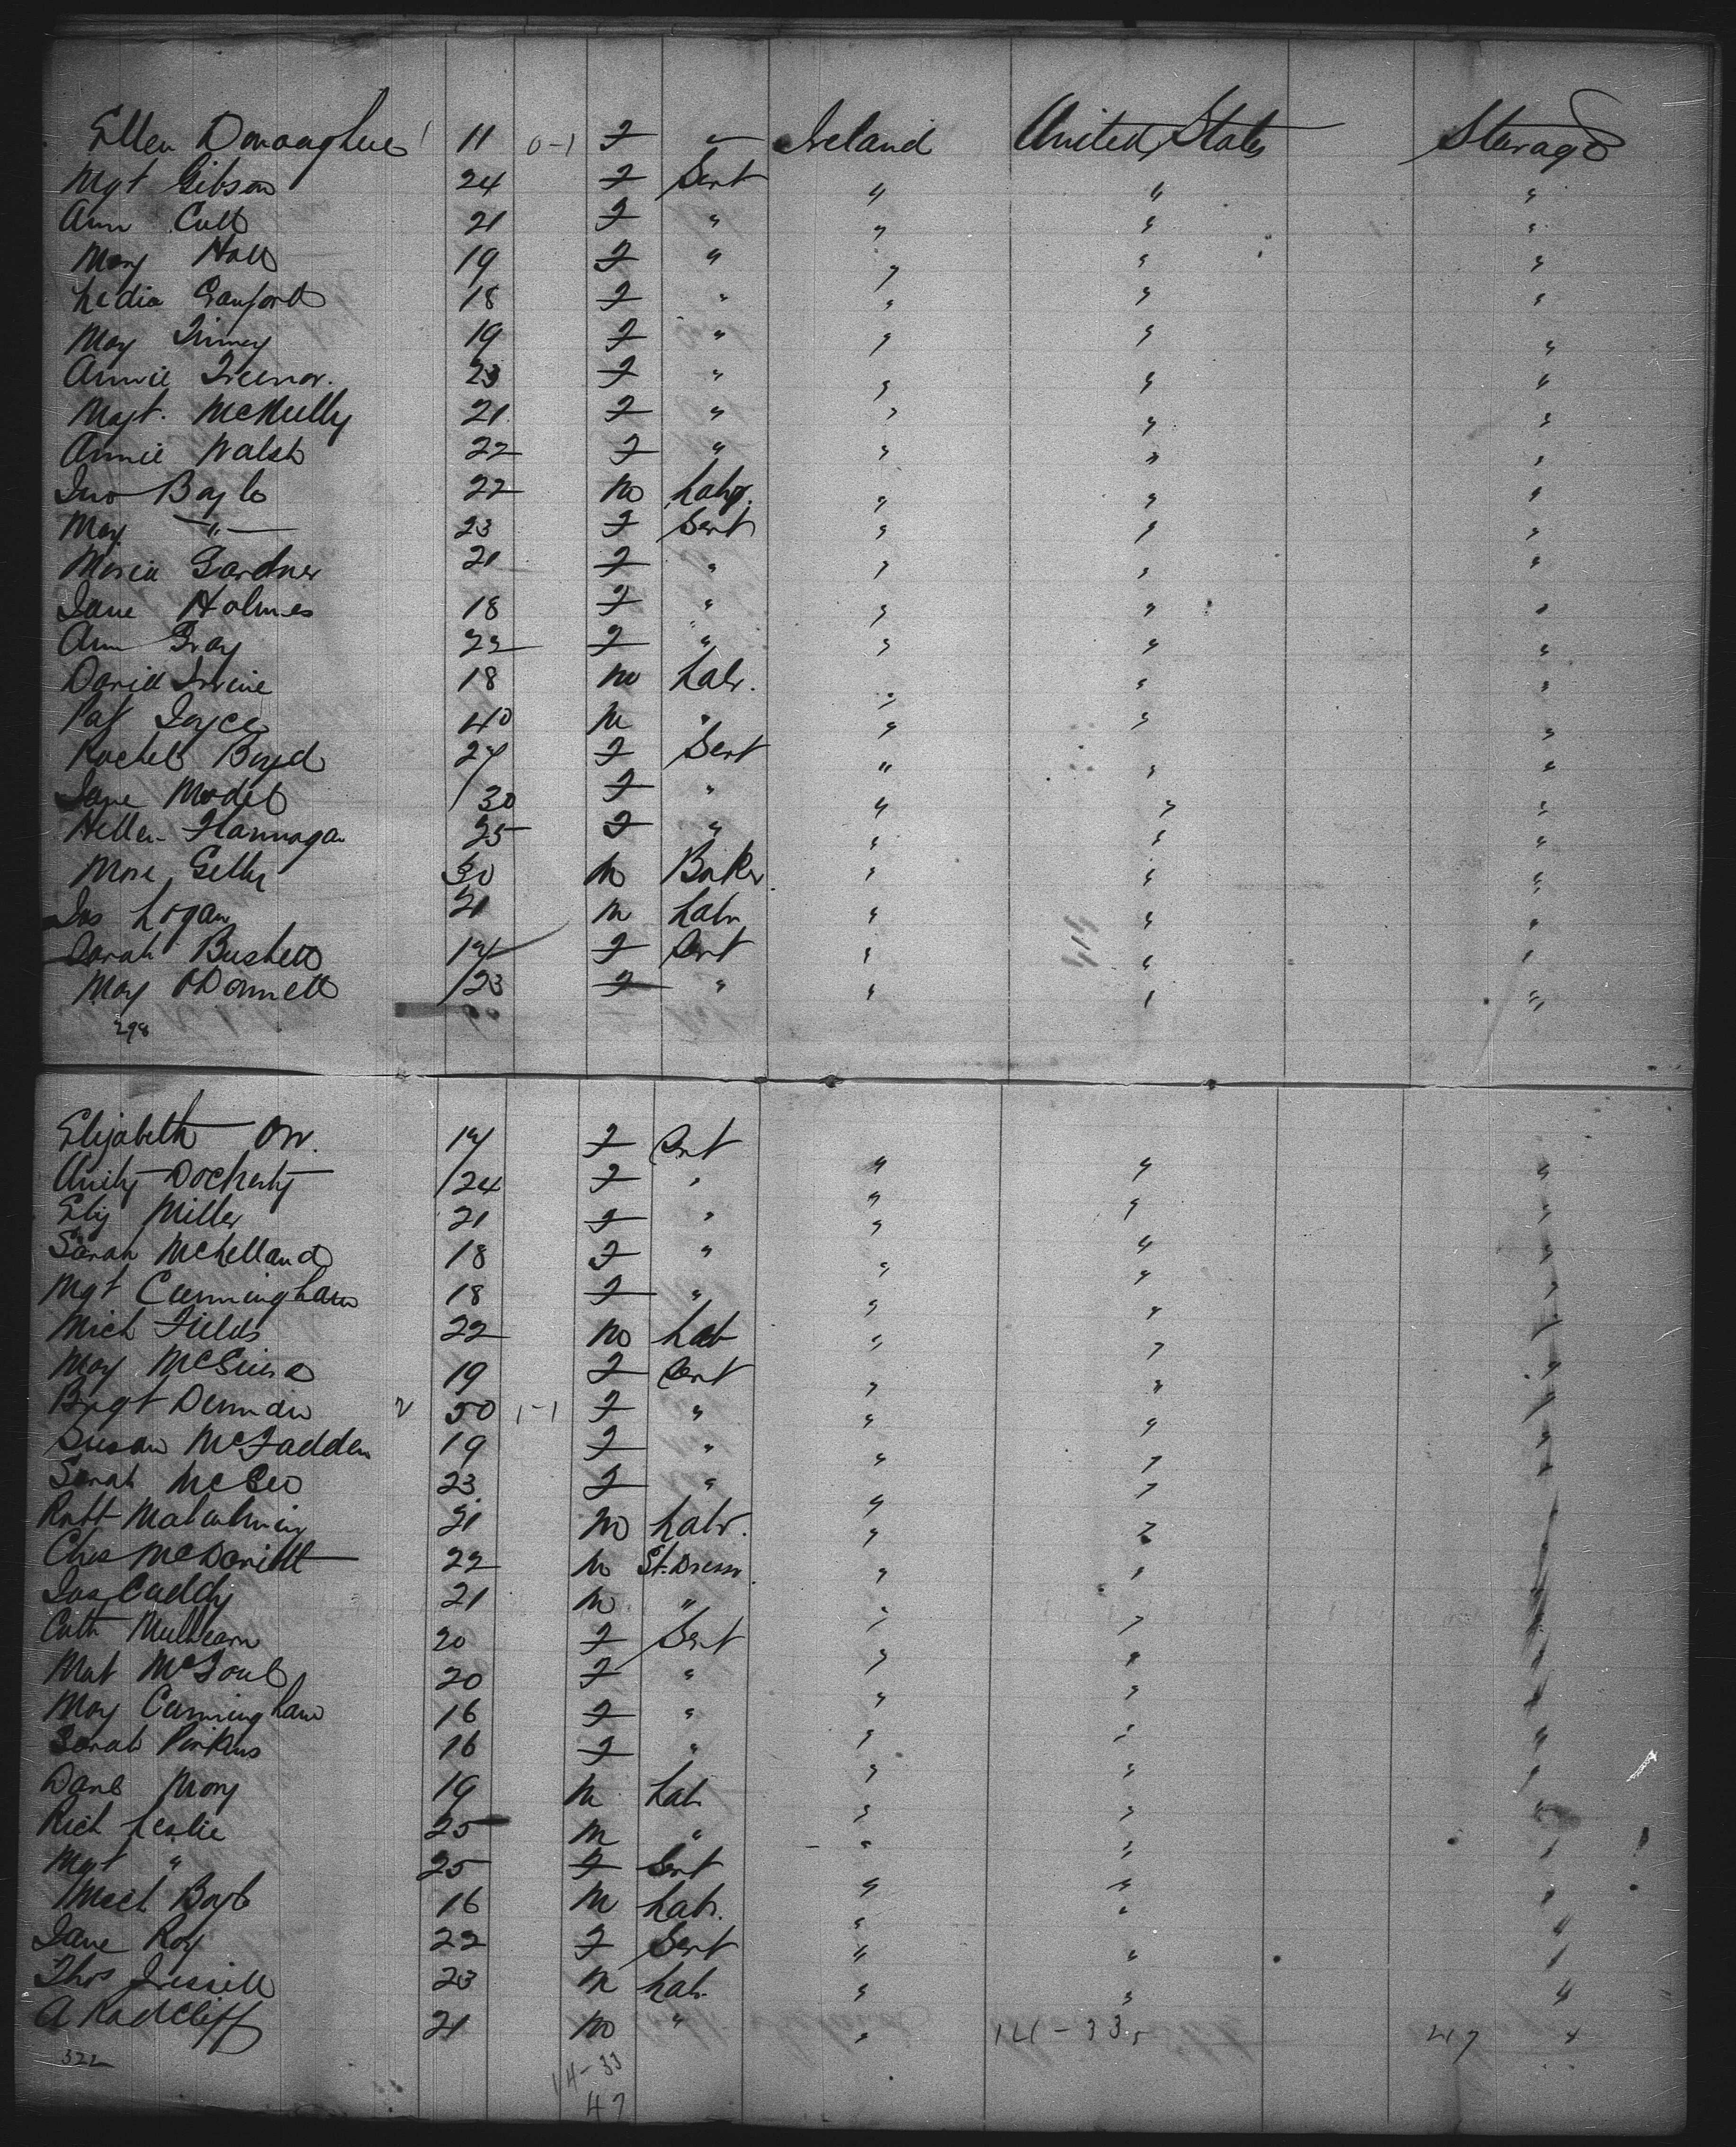 Ellen Donaaghue 1 11 0-1 F " Ireland United States Sterage
Mgt Gibson 24 F Sert " " "
Ann Cull 21 F " " " "
Mary Hall 19 F " " " "
Ledia Granford 18 F " " " "
May Finney 19 F " " " "
Annie Treenor. 23 F " " " "
Magt. McNully 21 F " " " "
Annie Walsh 22 F " " " "
Jno Boyle 22 M Labr. " " "
May " 23 F Sert " " "
Maria Gardner 21 F " " " "
Jane Holmes 18 F " " " "
Ann Gray 22 F " " " "
David Irvine 18 M Labr. " " "
Pat Joyce 40 M " " " "
Rachel Boyd 24 F Sert " " "
Jane Model 30 F " " " "
Hellen Flannagan 25 F " " " "
30 M Baker " " "
Jas Logan 21 M Labr " " "
Sarah Bushell 17 F Sert " " "
May ODonnell 23 F " " " "
298
Elizabeth Orr. 17 F Sert " " "
Unity Docherty 24 F " " " "
Eliz Miller 21 F " " " "
Sarah McClelland 18 F " " " "
Mgt Cunningham 18 F " " " "
Mich Fields 22 M Lab " " "
May 19 F Sert " " "
Brgt 2 50 1-1 F " " " "
Susan McFadden 19 F " " " "
Sarah McGee 23 F " " " "
Robt 21 M Labr. " " "
Chas McDevitt 22 M St. Dressr " " "
Jas Caddy 21 M " " " "
Cath Mulhearn 20 F Sert " " "
Mat McFoul 20 F " " " "
May Cunningham 16 F " " " "
Sarah Perkins 16 F " " " "
Danl Mory 19 M Lab. " " "
Rich Leslie 25 M " " " "
Mgt " 25 F Sert " " "
Mich Boyle 16 M Labr. " " "
Jane Roy 22 F Sert " " "
Thos 23 M Lab. " " "
A Radcliff 21 M " " 14-33 47 "
322
14-33
47